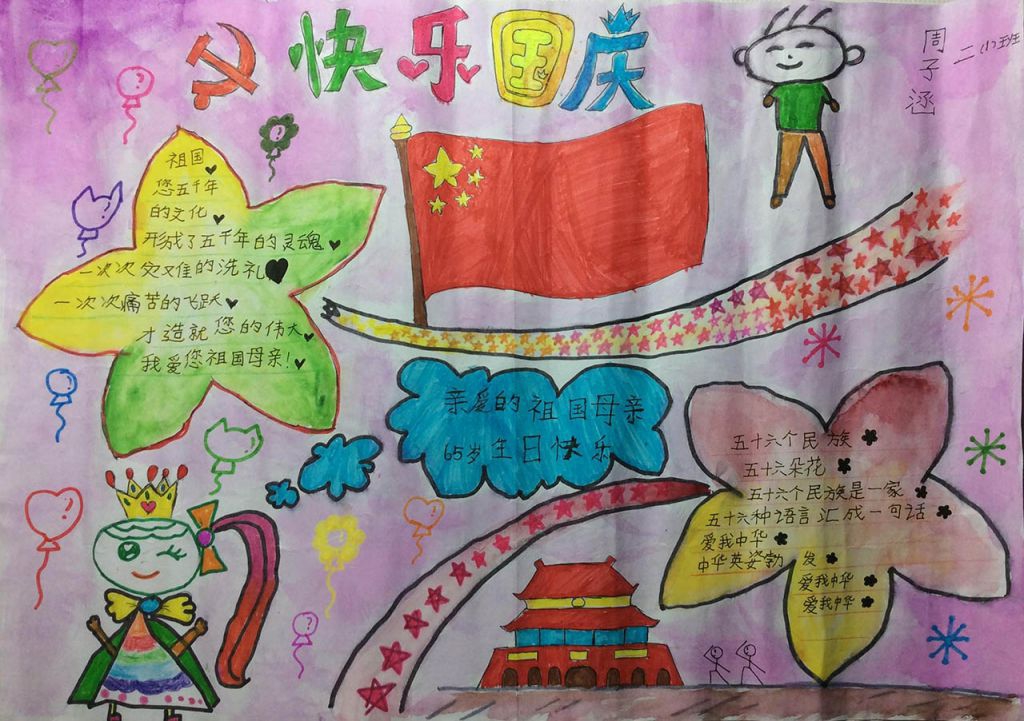 快乐国庆
周子涵
二(1)班
祖国
您五千年
的文化
形成了五千年的灵魂
一次次灾难的洗礼
一次次痛苦的飞跃
才造就您的伟大
我爱您祖国母亲!
亲爱的祖国母亲
65岁生日快乐
五十六个民族
五十六朵花
五十六个民族是一家
五十六种语言汇成一句话
爱我中华
中华英姿勃发
爱我中华
爱我中华